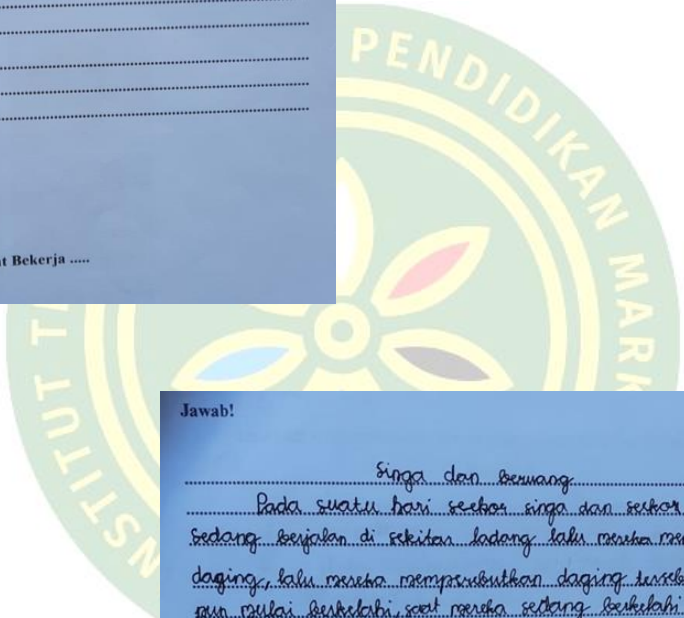 PENDIDIKAN MARK
INSTITUT TA
t Bekerja .....
Jawab!
Singa dan beruang
Pada suatu hari seekor singa dan seekor
sedang berjalan di sekitar ladang lalu mereka me
daging, lalu mereka memperebutkan daging terseb
pun mulai berkelahi, saat mereka sedang berkelahi